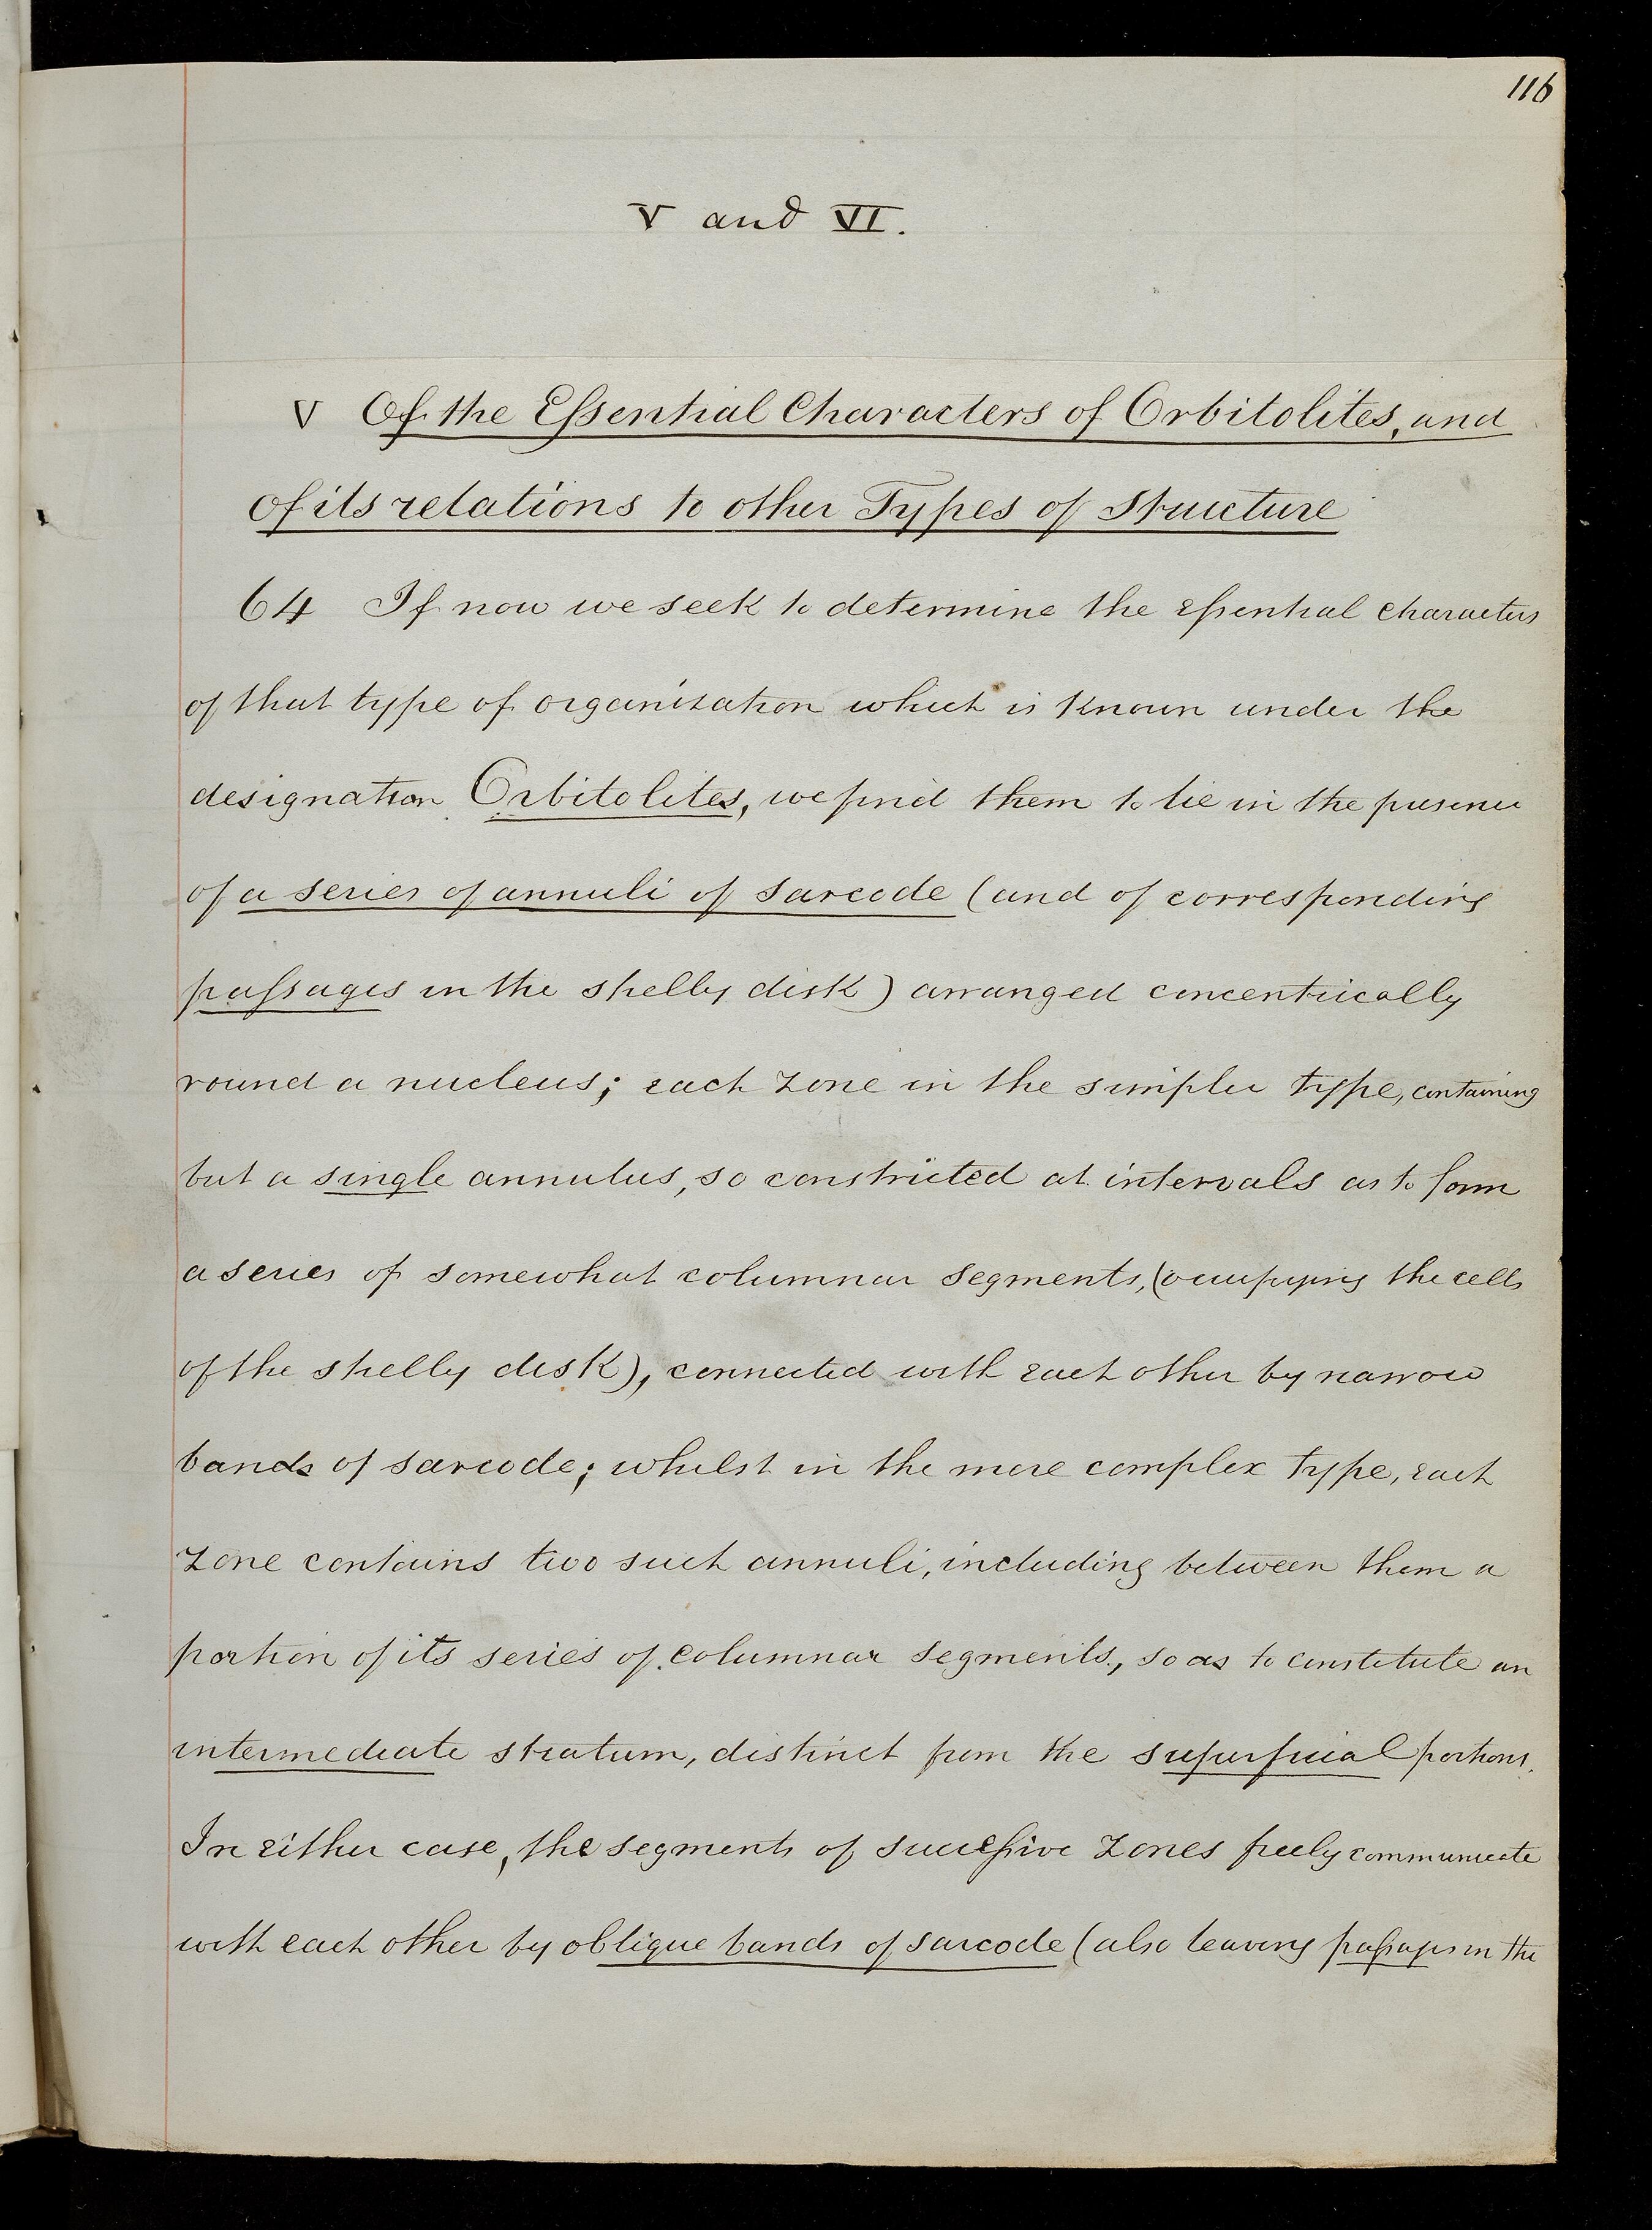 116
V and VI.
V Of the Essential Characters of Orbitolites, and
of its relations to other Types of Structure
64 If now we seek to determine the essential characters
of that type of organization which is known under the
designation Orbitolites, we find them to lie in the presence
of a series of annuli of sarcode (and of corresponding
passages in the shelly disk) arranged concentrically
round a nucleus; each zone in the simpler type, containing
but a single annulus, so constricted at intervals as to form
a series of somewhat columnar segments, (occupying the cells
of the shelly disk), connected with each other by narrow
bands of sarcode; whilst in the more complex type, each
zone contains two such annuli, including between them a
portion of its series of columnar segments, so as to constitute an
intermediate stratum, distinct from the superficial portions.
In either case, the segments of successive zones freely communicate
with each other by oblique bands of sarcode (also leaving passages in the